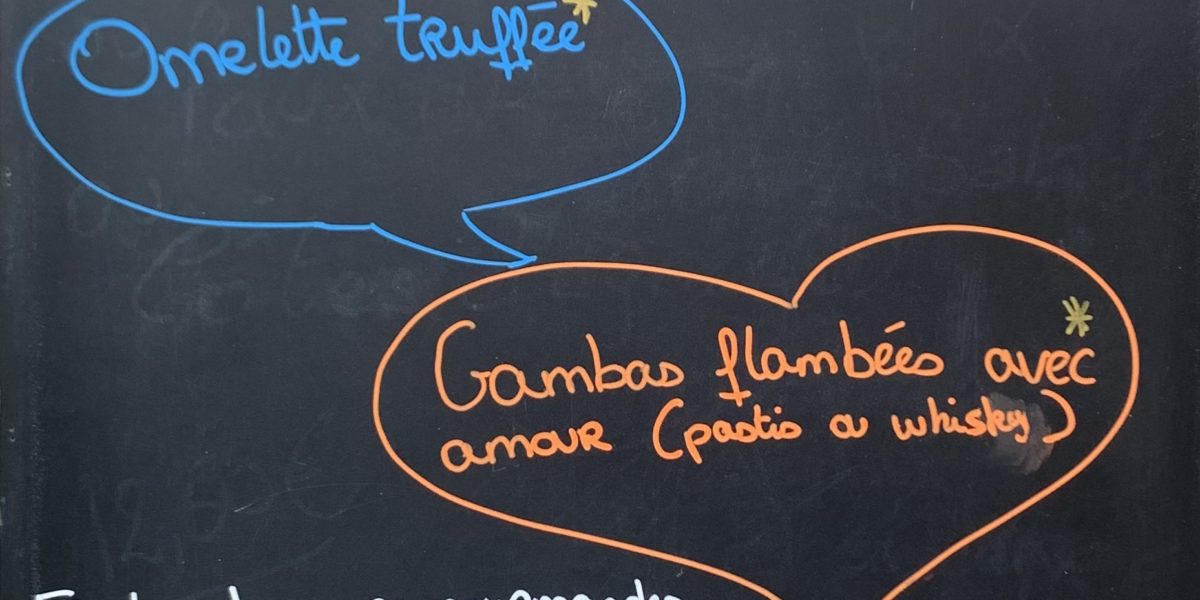 Omelette truffée*
Gambas flambées avec*
amour (pastis ou whisky)